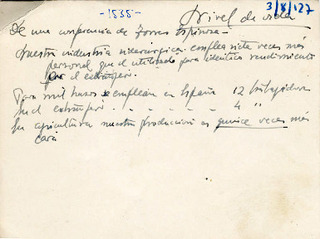 -1535-
Nivel de vida
3/8/27
De una conferencia de Torres Espinosa-
Nuestra industria siderúrgica emplea siete veces más
personal que el utilizado para idéntico rendimiento
por el extranjero.
Para mil husos se emplean en España 12 trabajadores
en el extranjero - - - - - - 4 "
En agricultura nuestra producción es quince veces más
cara